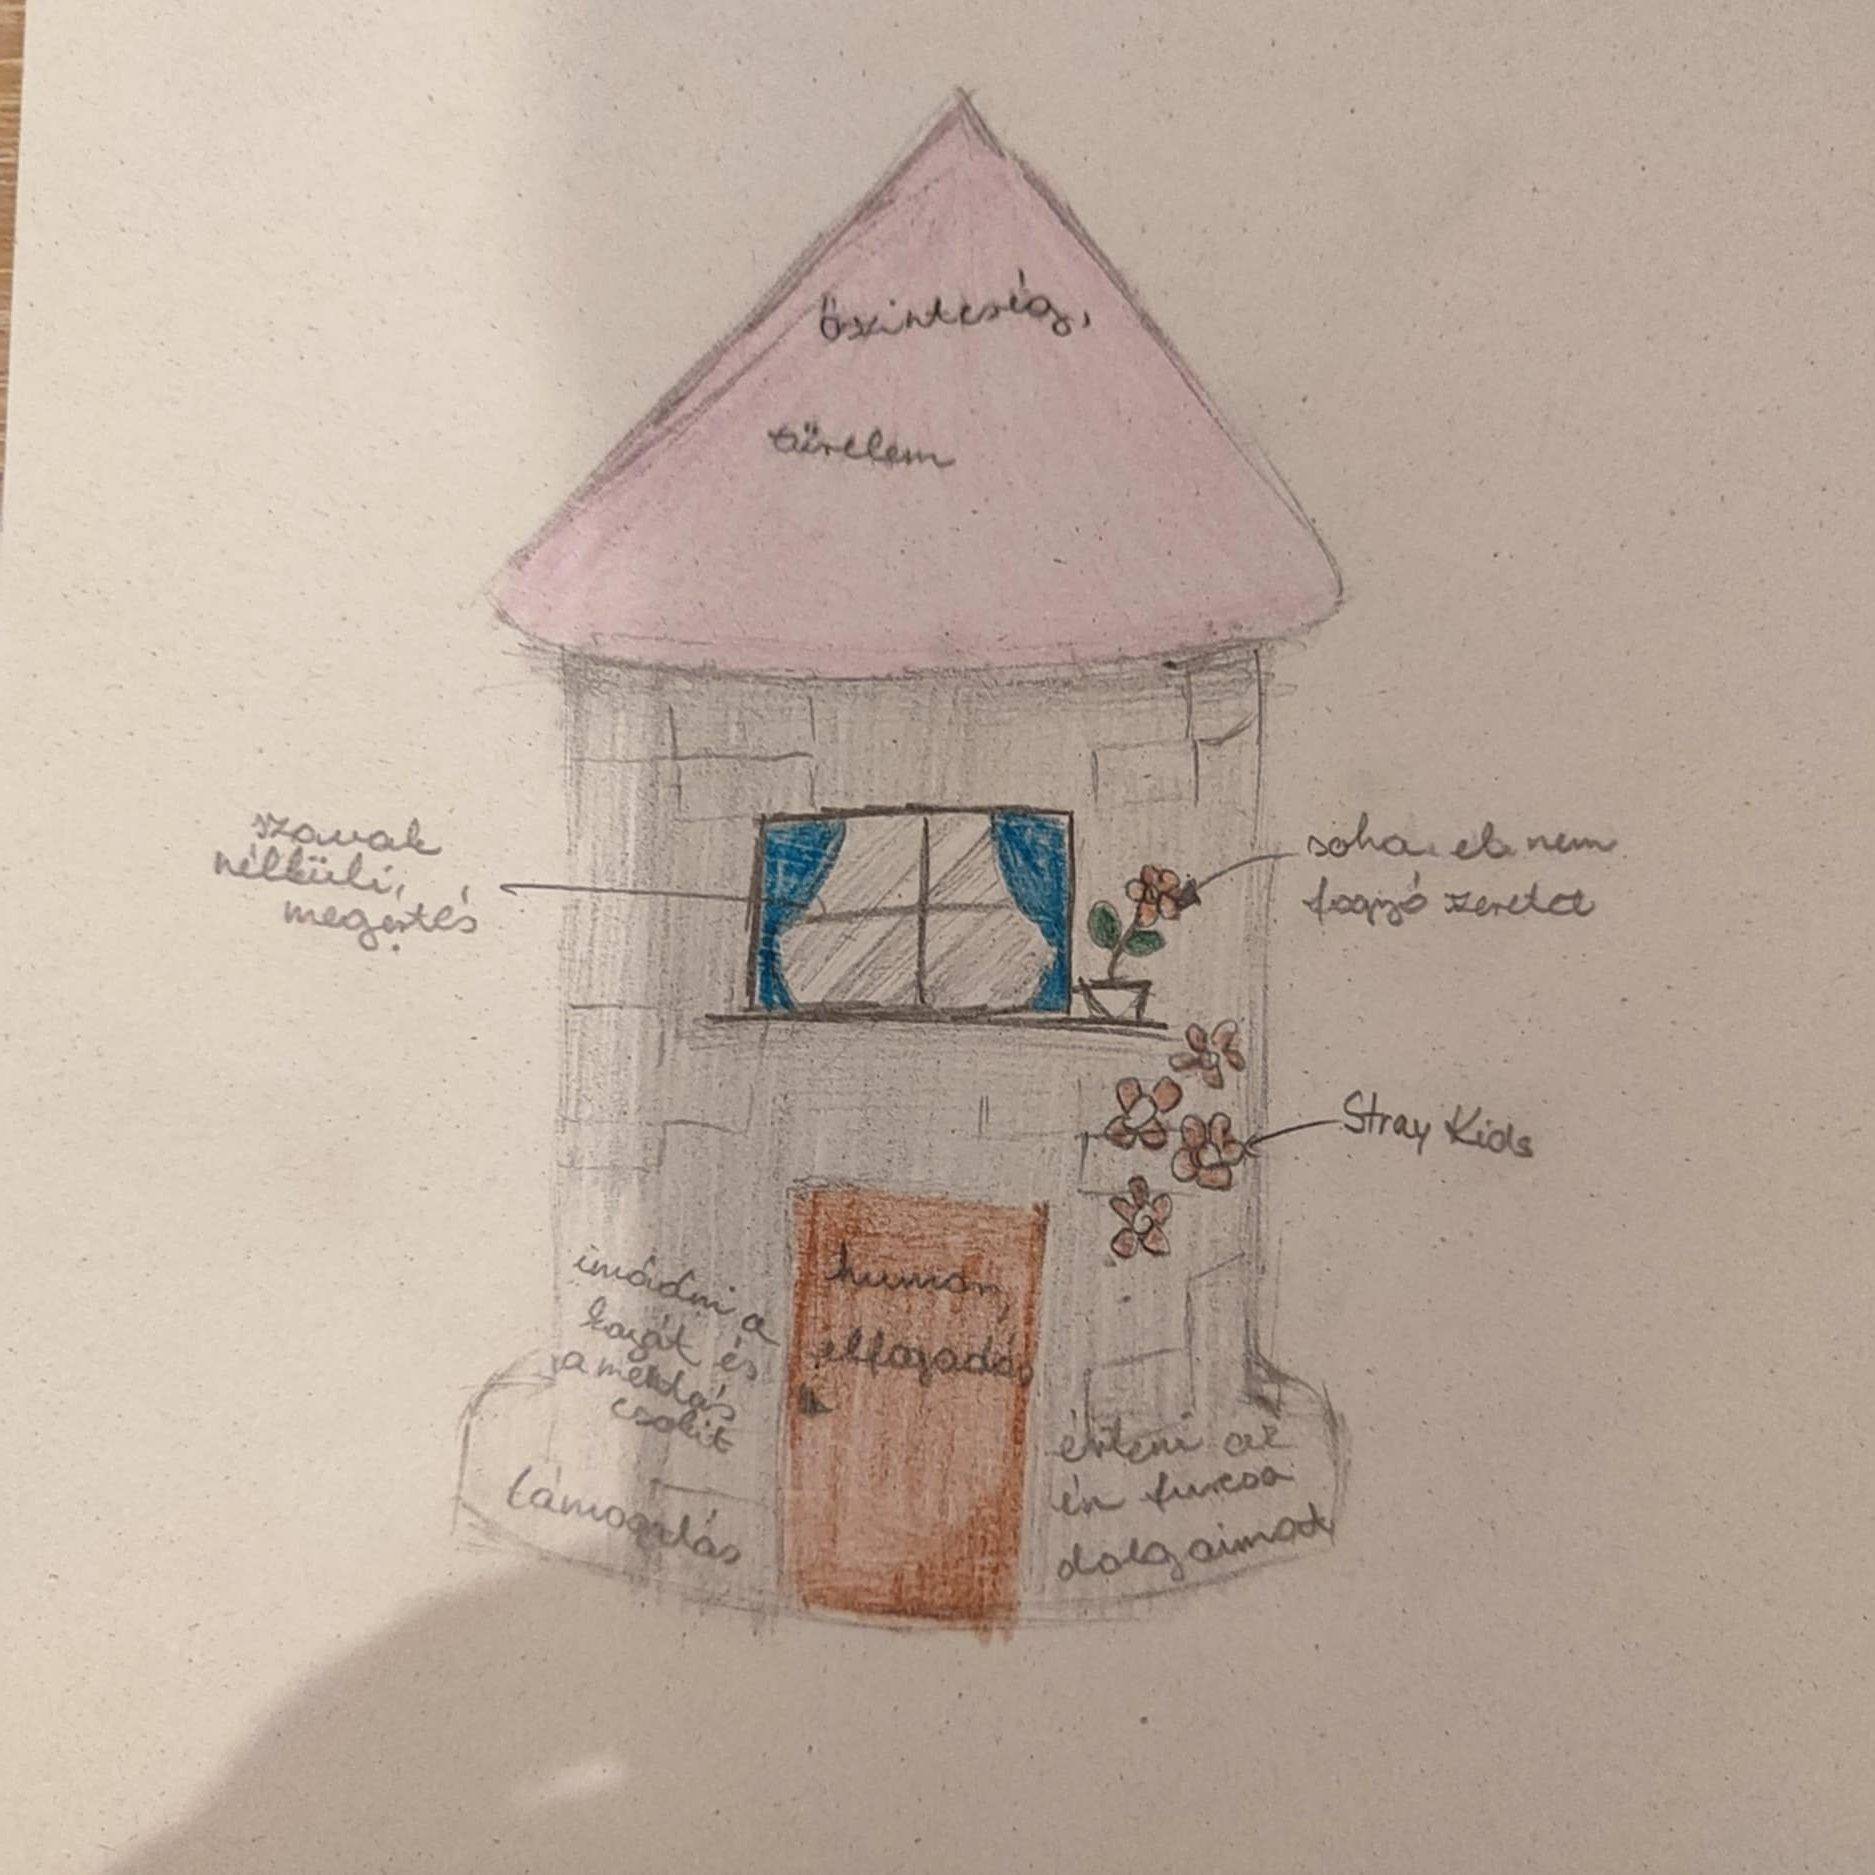 őszinteség,
türelem
szavak
nélküli,
megértés
soha el nem
fogyó szeretet
Stray Kids
imádni a
kagát és
a mentás
csokit
humor,
elfogadás
támogatás
érteni az
én furcsa
dolgaimat